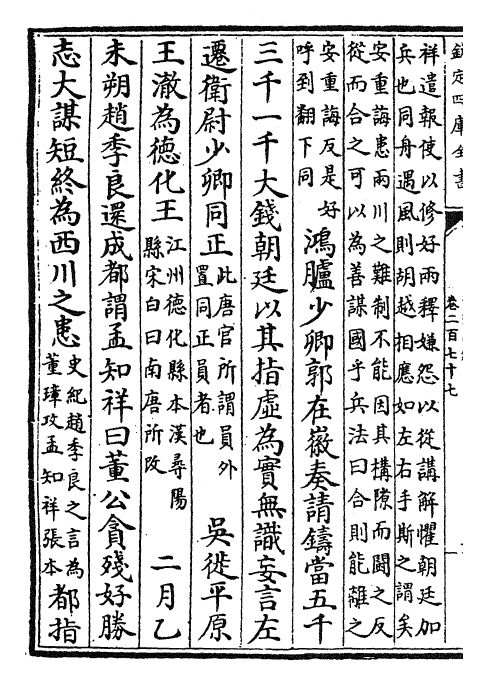 欽定四庫全書
卷二百七十七
祥遣報使以修好兩釋嫌怨以從講解懼朝廷加
兵也同舟遇風則胡越相應如左右手斯之謂矣
安重誨患兩川之難制不能因其構隙而鬬之反
從而合之可以為善謀國乎兵法曰合則能離之
安重誨反是好
呼到翻下同
鴻臚少卿郭在徽奏請鑄當五千
三千一千大錢朝廷以其指虛為實無識妄言左
遷衛尉少卿同正
此唐官所謂員外
置同正員者也
吳徙平原
王澈為德化王
江州德化縣本漢尋陽
縣宋白曰南唐所改
二月乙
未朔趙季良還成都謂孟知祥曰董公貪殘好勝
志大謀短終為西川之患
史紀趙季良之言為
董璋攻孟知祥張本
都指